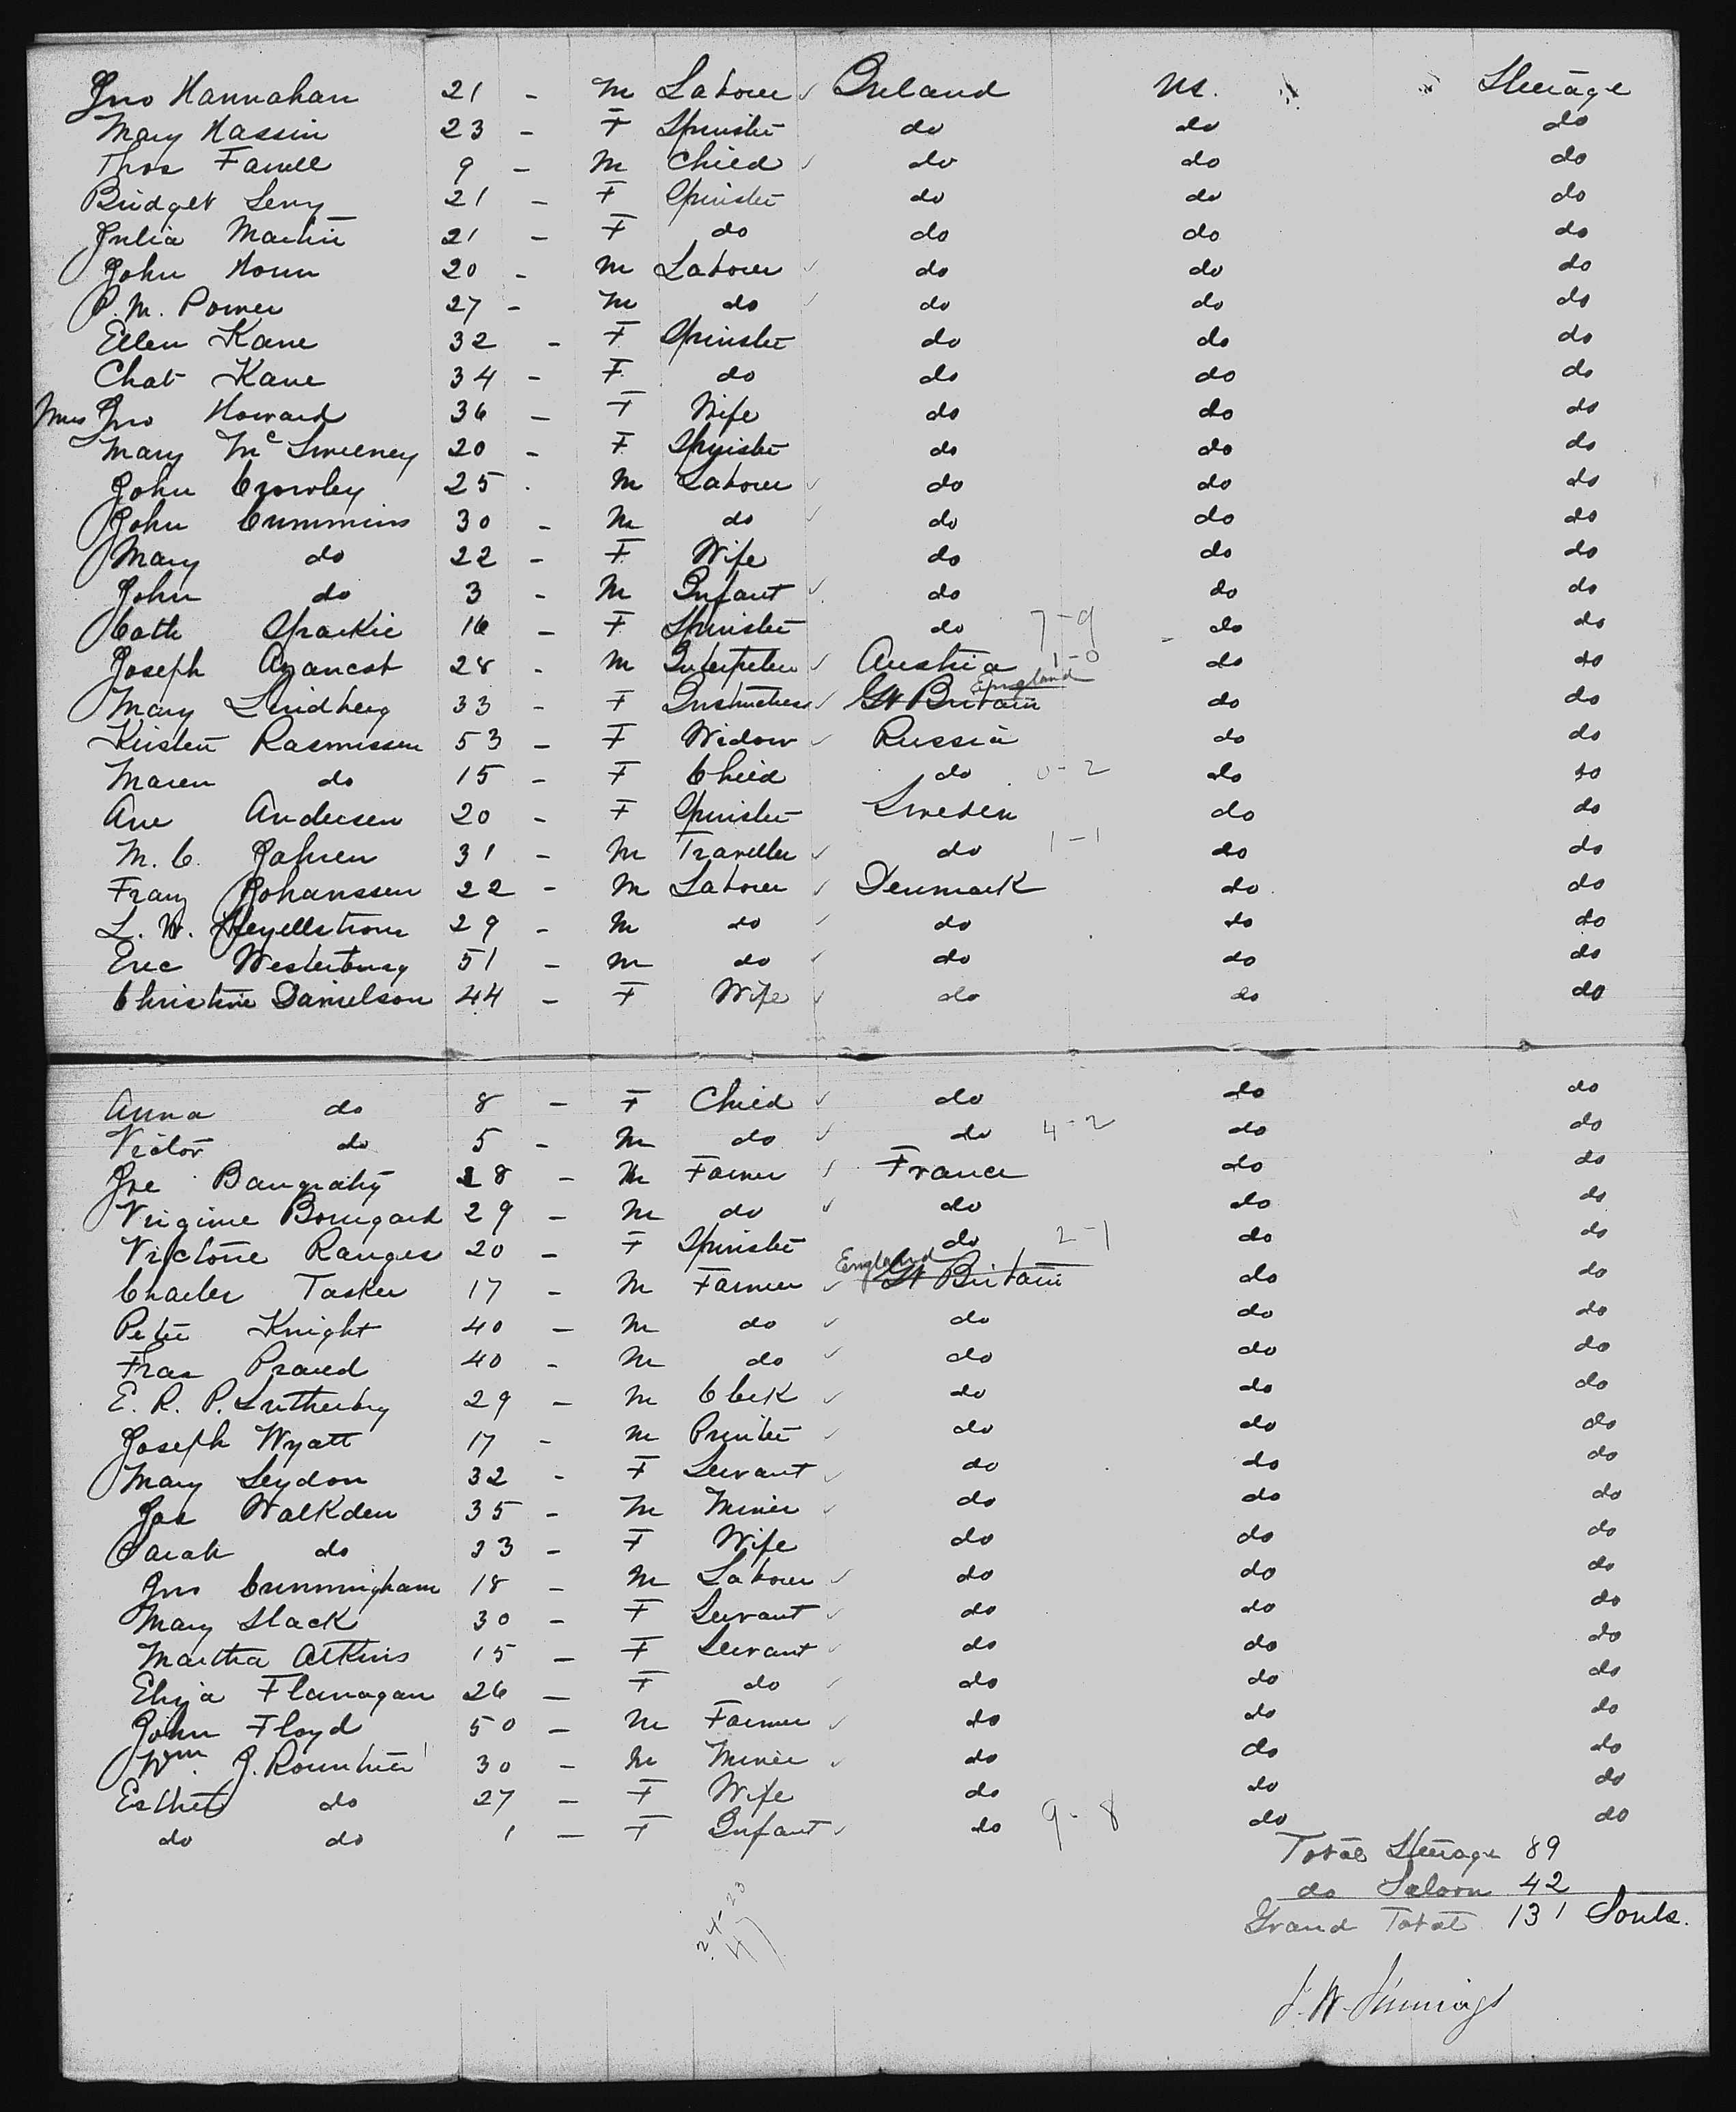 Jno Hannahan 21 - M Laborer ✓ Ireland US. Steerage
Mary Hassin 23 - F Spinster do do do
Thos Farrell 9 - M Child ✓ do do do
Bridget Leny 21 - F Spinster do do do
Julia Martin 21 - F do do do do
John Horun 20 - M Laborer ✓ do do do
P. M. Power 27 - M do ✓ do do do
Ellen Kane 32 - F Spinster do do do
Chat Kane 34 - F do do do do
Mrs Jno Howard 36 - F Wife do do do
Mary McSweeney 20 - F Spinster do do do
John Crowley 25 - M Laborer ✓ do do do
John Cummins 30 - M do ✓ do do do
Mary do 22 - F Wife do do do
John do 3 - M Infant ✓ do do do
Cath Sparkie 16 - F Spinster do 7-9 do do
Joseph 28 - M Interpreter ✓ Austria 1-0 do do
England
Mary Lindberg 33 - F Instructress ✓ Gt Britain do do
Kirsten Rasmussen 53 - F Widow ✓ Russia do do
Maren do 15 - F Child do 0-2 do do
Ane Andersen 20 - F Spinster Sweden do do
M. C. Jahren 31 - M Traveller ✓ do 1-1 do do
Franz Johanssen 22 - M Laborer ✓ Denmark do do
L. W. 29 - M do ✓ do do do
Eric Westerburg 51 - M do ✓ do do do
Christine Danielson 44 - F Wife ✓ do do do
Anna do 8 - F Child ✓ do do do
Victor do 5 - M do ✓ do 4-2 do do
Jre 28 - M Farmer ✓ France do do
Virginie Bouregard 29 - M do ✓ do do do
Victorie Ranges 20 - F Spinster do 2-1 do do
England
Charles Tasker 17 - M Farmer ✓ Gt Britain do do
Peter Knight 40 - M do ✓ do do do
Fras Praed 40 - M do ✓ do do do
E. R. P. Sutherby 29 - M Clerk ✓ do do do
Joseph Wyatt 17 - M Printer ✓ do do do
Mary Leydon 32 - F Servant ✓ do do do
Jas Walkden 35 - M Miner ✓ do do do
Sarah do 33 - F Wife do do do
Jno Cunningham 18 - M Laborer ✓ do do do
Mary Slack 30 - F Servant ✓ do do do
Martha Atkins 15 - F Servant ✓ do do do
Eliza Flanagan 26 - F do ✓ do do do
John Floyd 50 - M Farmer ✓ do do do
Wm. J. Rountree 30 - M Miner ✓ do do do
Esther do 27 - F Wife do do do
do do 1 - F Infant ✓ do 9-8 do do
Total Steerage 89
do Saloon 42
Grand Total 131 Souls.
24-23
47
J. W. Jennings